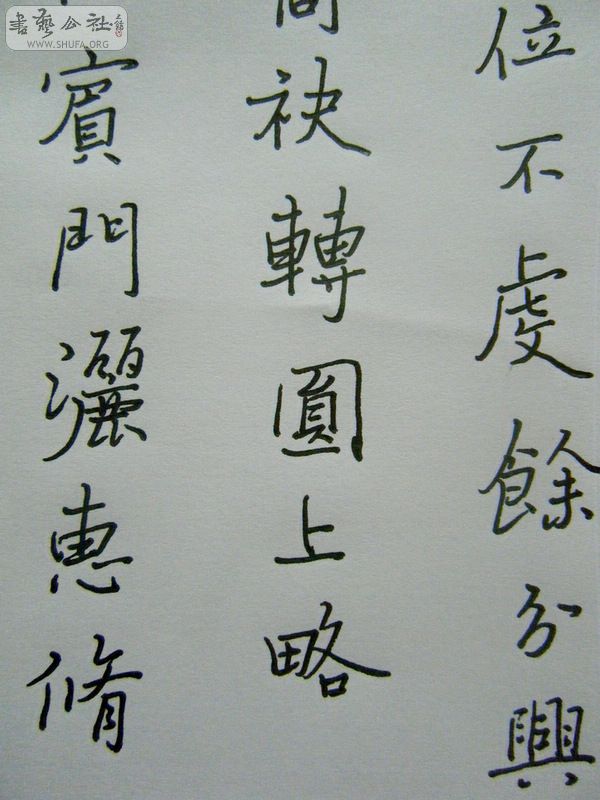 位不虔餘分興
袂轉圓上略
賓門灑惠脩
書藝公社
WWW.SHUFA.ORG